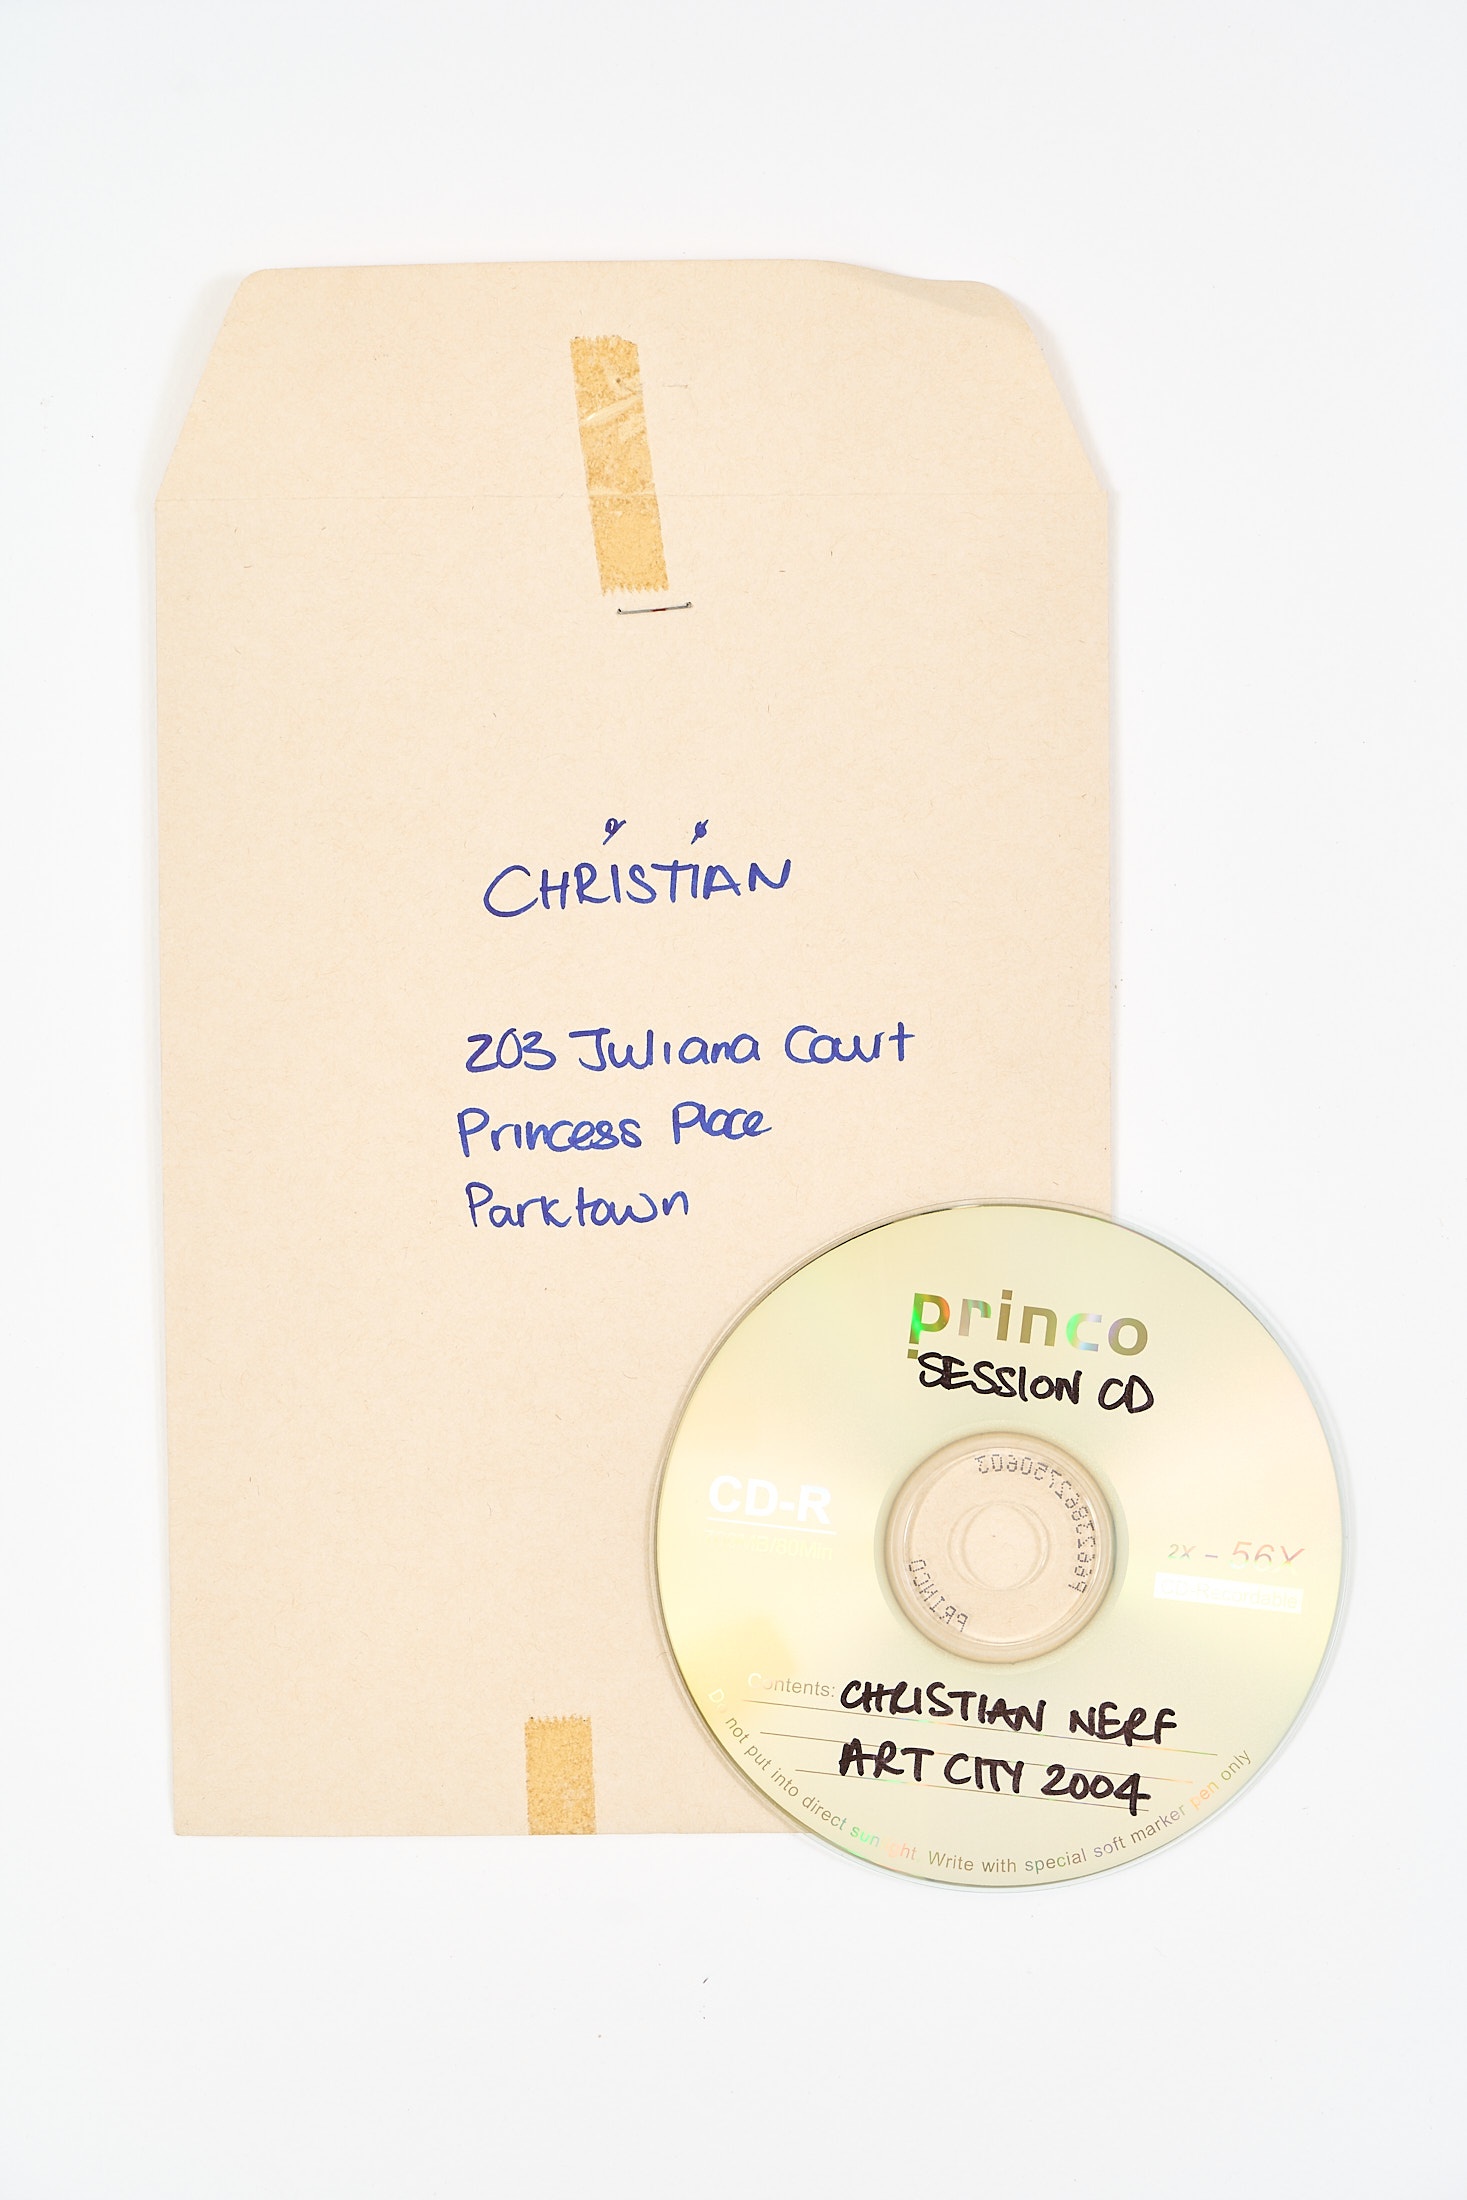 CHRISTIAN
203 Juliana Court
Princess Place
Parktown
princo
SESSION CD
CD-R
2X - 56X
Contents: CHRISTIAN NERF
ART CITY 2004
Do not put into direct sunlight. Write with special soft marker pen only
PRINCO